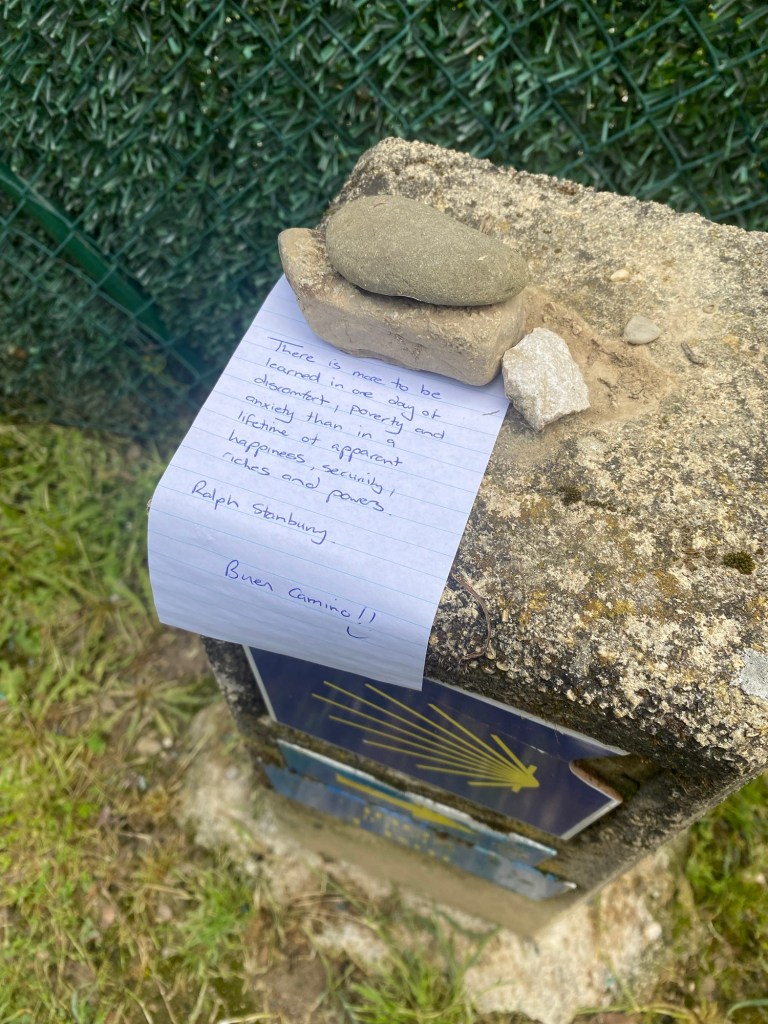 There is more to be
learned in one day of
discomfort, poverty and
anxiety than in a
lifetime of apparent
happiness, security,
riches and powers.
Ralph Stanbury.
Buen Camino!!